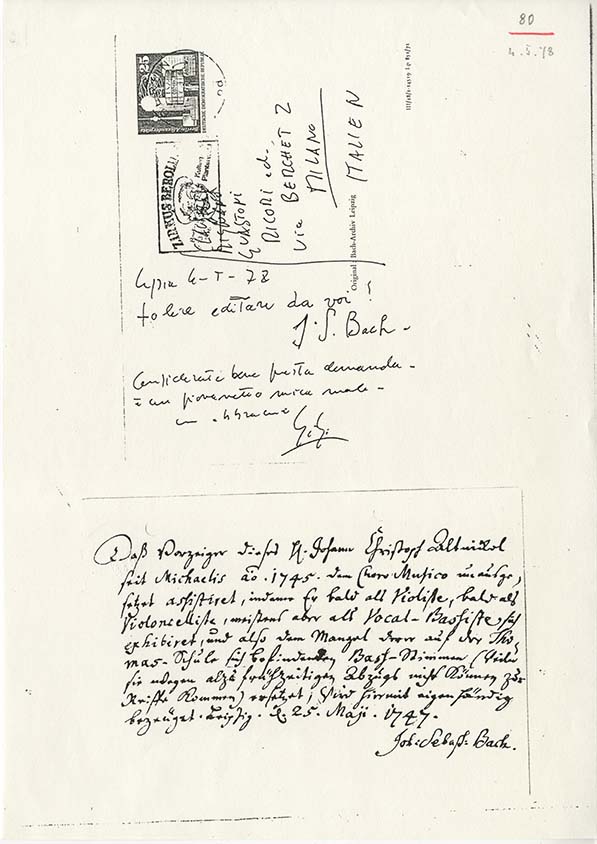 80
4.5.78
25
DEUTSCHE DEMOKRATISCHE REPUBLIK
ZIRKUS BEROLI
GUASTONI
RICORDI ed.
Via BERCHET 2
MILANO
ITALIEN
Original: Bach-Archiv Leipzig
Lipsia 4-5-78
editare da voi!
J. S. Bach
Considerate bene questa domanda
è un giovanotto mica male
Daß Vorzeiger dieses H. Johann Christoph Altnickol
seit Michaelis ao. 1745. dem Choro Musico unausge,
setzet assistiret, indeme Er bald als Violiste, bald als
Violoncelliste, meistens aber als Vocal-Bassiste, sich
exhibiret, und also dem Mangel derer auf der Tho-
mas-Schule sich befindenden Bass-Stimmen (weiln
sie wegen alzu frühzeitigen Abzugs nicht können zur
Reiffe kommen) ersetzet, Wird hiermit eigenhändig
bezeüget. Leipzig. d. 25. Maji. 1747.
Joh: Sebast: Bach.